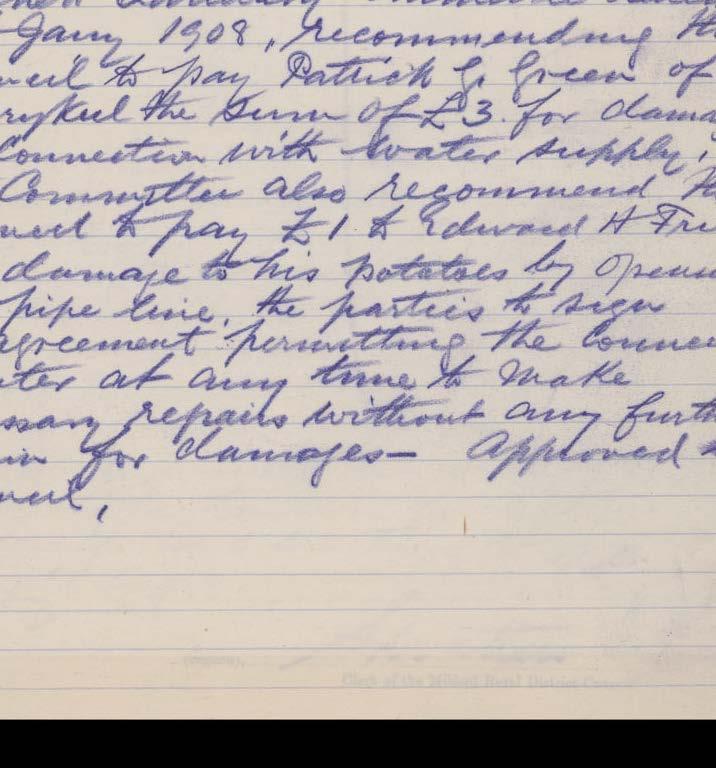 Jany 1908, recommending th
ncil to pay Patrick G. Green of
rykeel the sum of £3. for dama
Connection with water supply,
Committee also recommend th
ncil to pay £1 to Edward H Fre
damage to his potatoes by openi
pipe line, the parties to sign
agreement permitting the Counci
ter at any time to make
ssary repairs without any furth
im for damages— Approved
ncil,
Clerk of the Milford Rural District Council